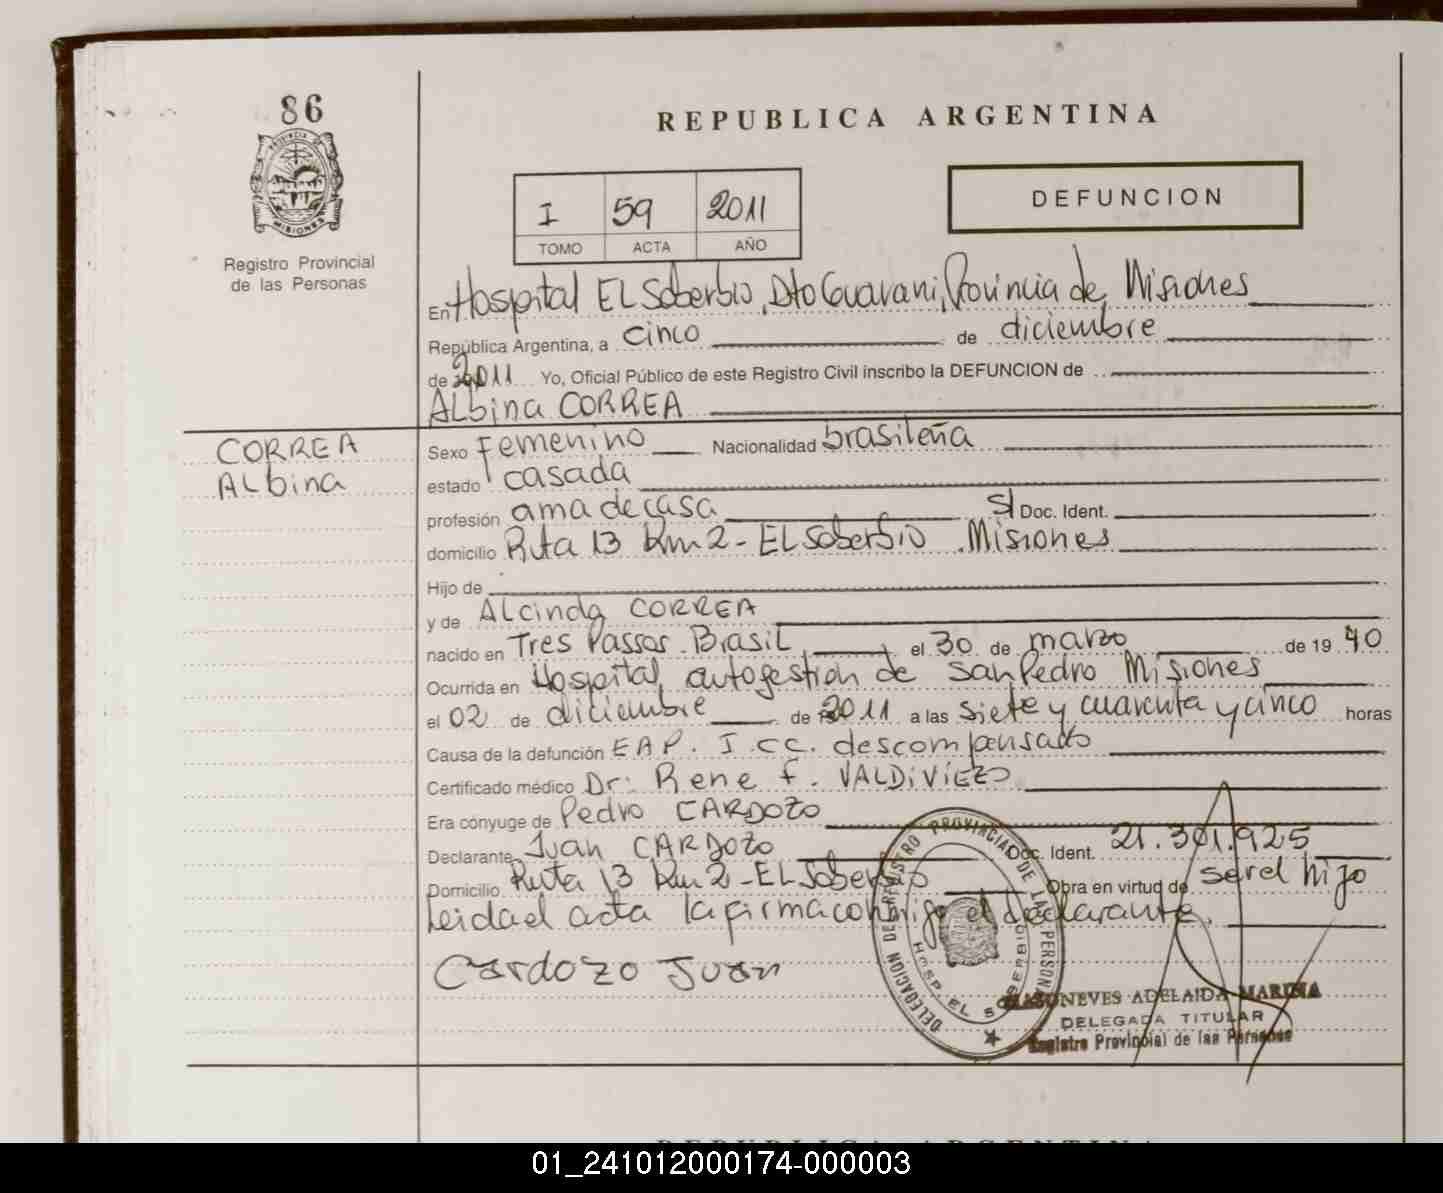 86
PROVINCIA DE
MISIONES
Registro Provincial
de las Personas
REPUBLICA ARGENTINA
I 59 2011
TOMO ACTA AÑO
DEFUNCION
En Hospital EL Soberbio, Dto Guarani, Provincia de Misiones
República Argentina, a cinco de diciembre
de 2011 Yo, Oficial Público de este Registro Civil inscribo la DEFUNCION de
ALbina CORREA
CORREA
ALbina
Sexo Femenino Nacionalidad brasileña
estado casada
profesión ama de casa S/ Doc. Ident.
domicilio Ruta 13 Km 2 - EL Soberbio Misiones
Hijo de
y de ALcinda CORREA
nacido en Tres Passos - Brasil, el 30 de marzo de 19 40
Ocurrida en Hospital autogestion de San Pedro Misiones
el 02 de diciembre de 2011 a las siete y cuarenta y cinco horas
Causa de la defunción EAP. I.CC. descompensado
Certificado médico Dr: Rene F. VALDIVIEZO
Era cónyuge de Pedro CARDOZO
Declarante Juan CARDOZO Doc. Ident. 21.301.925
Domicilio Ruta 13 Km 2 - EL Soberbio Obra en virtud de ser el hijo
Leida el acta la firma conmigo el declarante.
Cardozo Juan
DELEGACION DE REGISTRO PROVINCIAL DE LAS PERSONAS
HOSP. EL SOBERBIO
NEVES ADELAIDA MARINA
DELEGADA TITULAR
Registro Provincial de las Personas
REPUBLICA ARGENTINA
01_241012000174-000003